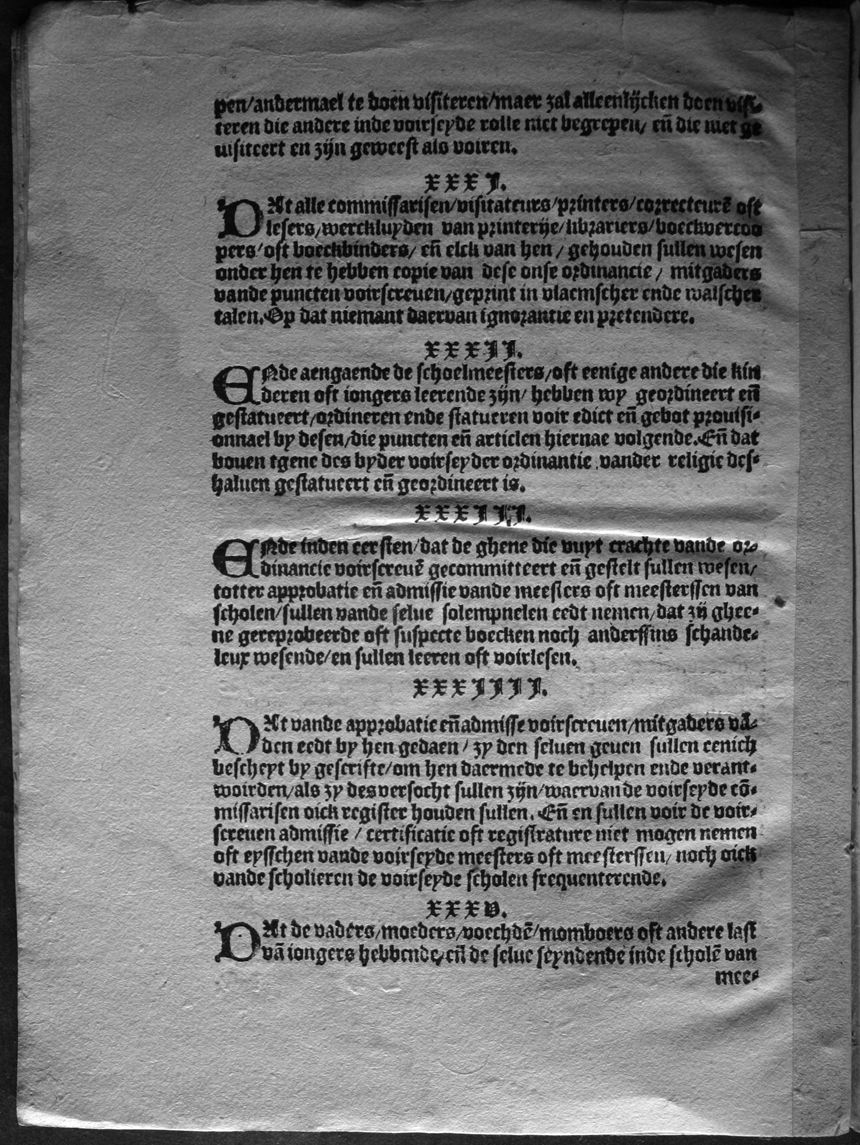 pen/andermael te doen visiteren/maer zal alleenlijcken doen visi⸗
teren die andere inde voirseyde rolle niet begrepen/ eñ die niet ge
uisiteert en zijn geweest als voiren.
xxxj.
DAt alle commissarisen/visitateurs/printers/correcteurē oft
lesers/werckluyden van printerije/librariers/boeckvercoo
pers/oft boeckbinders/ eñ elck van hen/ gehouden sullen wesen
onder hen te hebben copie van dese onse ordinancie/ mitgaders
vande puncten voirscreuen/geprint in vlaemscher ende walscher
talen. Op dat niemant daervan ignorantie en pretendere.
xxxij.
ENde aengaende de schoelmeesters/oft eenige andere die kin
deren oft iongers leerende zijn/ hebben wy geordineert eñ
gestatueert/ordineren ende statueren voir edict eñ gebot prouisi⸗
onnael by desen/die puncten eñ articlen hiernae volgende. Eñ dat
bouen tgene des byder voirseyder ordinantie vander religie des⸗
haluen gestatueert eñ geordineert is.
xxxiij.
ENde inden eersten/dat de ghene die vuyt crachte vande or⸗
dinancie voirscreuē gecommitteert eñ gestelt sullen wesen/
totter approbatie eñ admissie vande meesters oft meesterssen van
scholen/sullen vande selue solempnelen eedt nemen/dat zij ghee⸗
ne gereprobeerde oft suspecte boecken noch anderssins schande⸗
leux wesende/en sullen leeren oft voirlesen.
xxxiiij.
DAt vande approbatie eñ admisse voirscreuen/mitgaders vā⸗
den eedt by hen gedaen/ zy den seluen geuen sullen eenich
bescheyt by gescrifte/om hen daermede te behelpen ende verant⸗
woirden/als zy des versocht sullen zijn/waervan de voirseyde cō⸗
missarisen oick register houden sullen. Eñ en sullen voir de voir⸗
screuen admissie/ certificatie oft registrature niet mogen nemen
oft eysschen vande voirseyde meesters oft meesterssen/ noch oick
vande scholieren de voirseyde scholen frequenterende.
xxxv.
DAt de vaders/moeders/voechdē/momboers oft andere last
vā iongers hebbende/eñ de selue seyndende inde scholē van
mee⸗